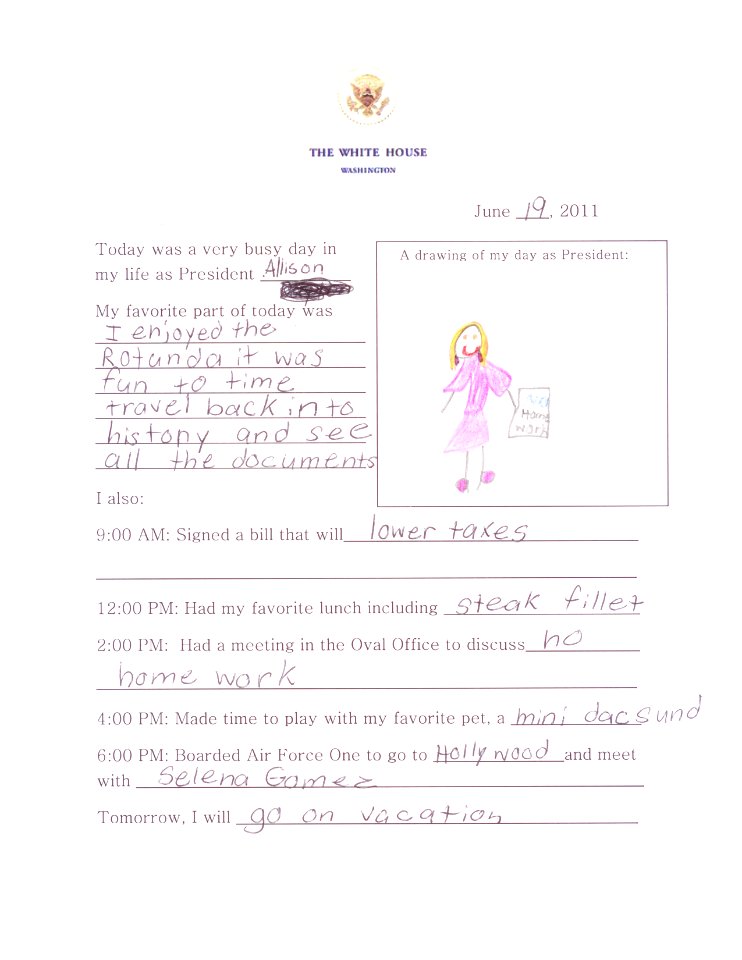 THE WHITE HOUSE
WASHINGTON
June 19, 2011
Today was a very busy day in
my life as President Allison
My favorite part of today was
I enjoyed the
Rotunda it was
fun to time
travel back into
history and see
all the documents
A drawing of my day as President:
Home
work
I also:
9:00 AM: Signed a bill that will lower taxes
12:00 PM: Had my favorite lunch including steak fillet
2:00 PM: Had a meeting in the Oval Office to discuss no
home work
4:00 PM: Made time to play with my favorite pet, a mini dacsund
6:00 PM: Boarded Air Force One to go to Hollywood and meet
with Selena Gomez
Tomorrow, I will go on vacation